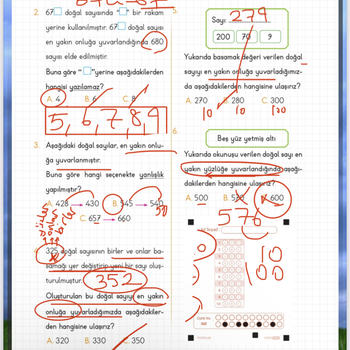 2. 67 doğal sayısında " " bir rakam
yerine kullanılmıştır. 67 doğal sayısı
en yakın onluğa yuvarlandığında 680
sayısı elde edilmiştir.
Buna göre " "yerine aşağıdakilerden
hangisi yazılamaz?
A. 4 B. 6 C. 8
5, 6, 7, 8, 9
3. Aşağıdaki doğal sayılar, en yakın onlu-
ğa yuvarlanmıştır.
Buna göre hangi seçenekte yanlışlık
yapılmıştır?
A. 428 → 430 B. 545 → 540
50
C. 657 → 660
325 doğal sayısının birler ve onlar ba-
samağı yer değiştirip yeni bir sayı oluş-
turulmuştur. 352
Oluşturulan bu doğal sayıyı en yakın
onluğa yuvarladığımızda aşağıdakiler-
den hangisine ulaşırız?
A. 320 B. 330 C. 350
5.
Sayı: 279
200 70 9
Yukarıda basamak değeri verilen doğal
sayıyı en yakın onluğa yuvarladığımız-
da aşağıdakilerden hangisine ulaşırız?
A. 270 B. 280 C. 300
10 10 100
6.
Beş yüz yetmiş altı
Yukarıda okunuşu verilen doğal sayı en
yakın yüzlüğe yuvarlandığında aşağı-
dakilerden hangisine ulaşırız?
A. 500 B. 520 C. 600
576
10
100